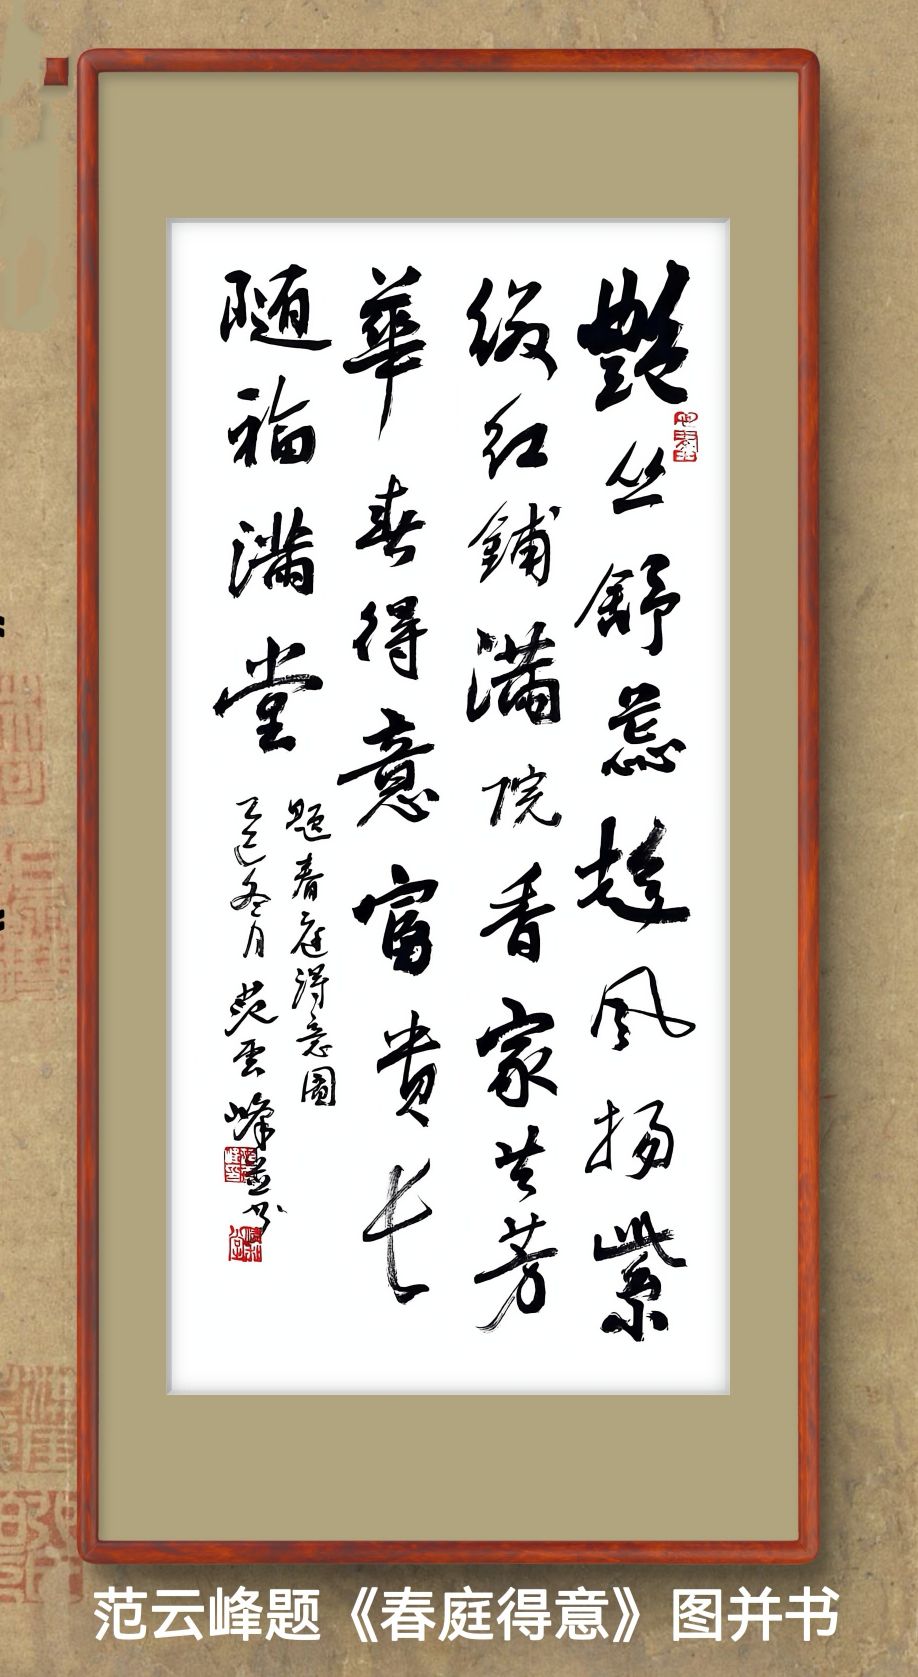 艷丛舒蕊趁风扬紫
缀红铺满院香家共芳
華春得意富贵长
随福满堂
题春庭得意圖
乙巳冬月范雲峰並书
范云峰题《春庭得意》图并书